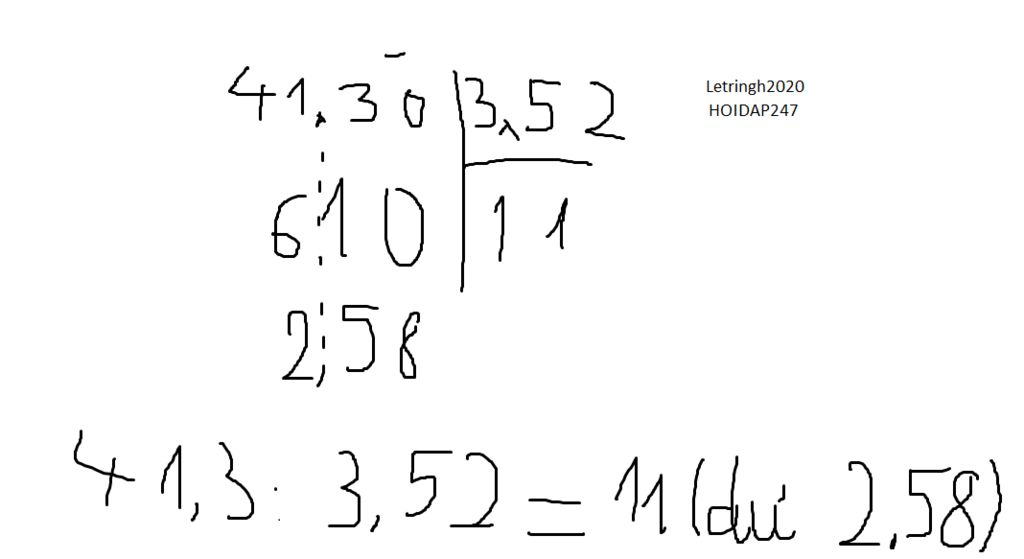 41,30 3,52
Letringh2020
HOIDAP247
6,10 11
2,58
41,3 : 3,52 = 11 (dư 2,58)